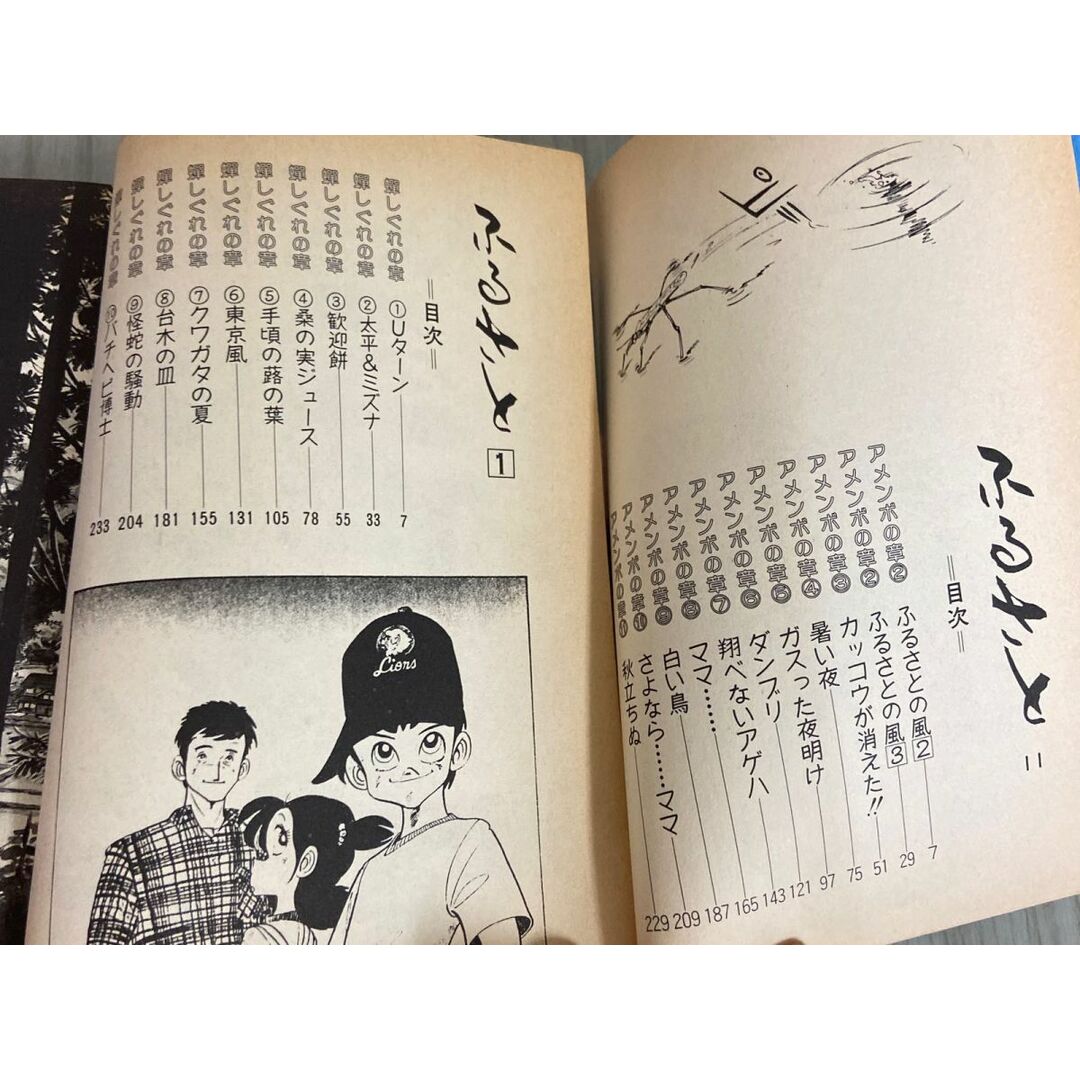 ふるさと 1
=目次=
蟬しぐれの章 ①Uターン 7
蟬しぐれの章 ②太平&ミズナ 33
蟬しぐれの章 ③歓迎餅 55
蟬しぐれの章 ④桑の実ジュース 78
蟬しぐれの章 ⑤手頃の蕗の葉 105
蟬しぐれの章 ⑥東京風 131
蟬しぐれの章 ⑦クワガタの夏 155
蟬しぐれの章 ⑧台木の皿 181
蟬しぐれの章 ⑨怪蛇の騒動 204
蟬しぐれの章 ⑩バチヘビ博士 233
Lions
ふるさと 11
=目次=
アメンボの章② ふるさとの風2 7
アメンボの章② ふるさとの風3 29
アメンボの章③ カッコウが消えた!! 51
アメンボの章④ 暑い夜 75
アメンボの章⑤ ガスった夜明け 97
アメンボの章⑥ ダンブリ 121
アメンボの章⑦ 翔べないアゲハ 143
アメンボの章⑧ ママ…… 165
アメンボの章⑨ 白い鳥 187
アメンボの章⑩ さよなら……ママ 209
アメンボの章⑪ 秋立ちぬ 229